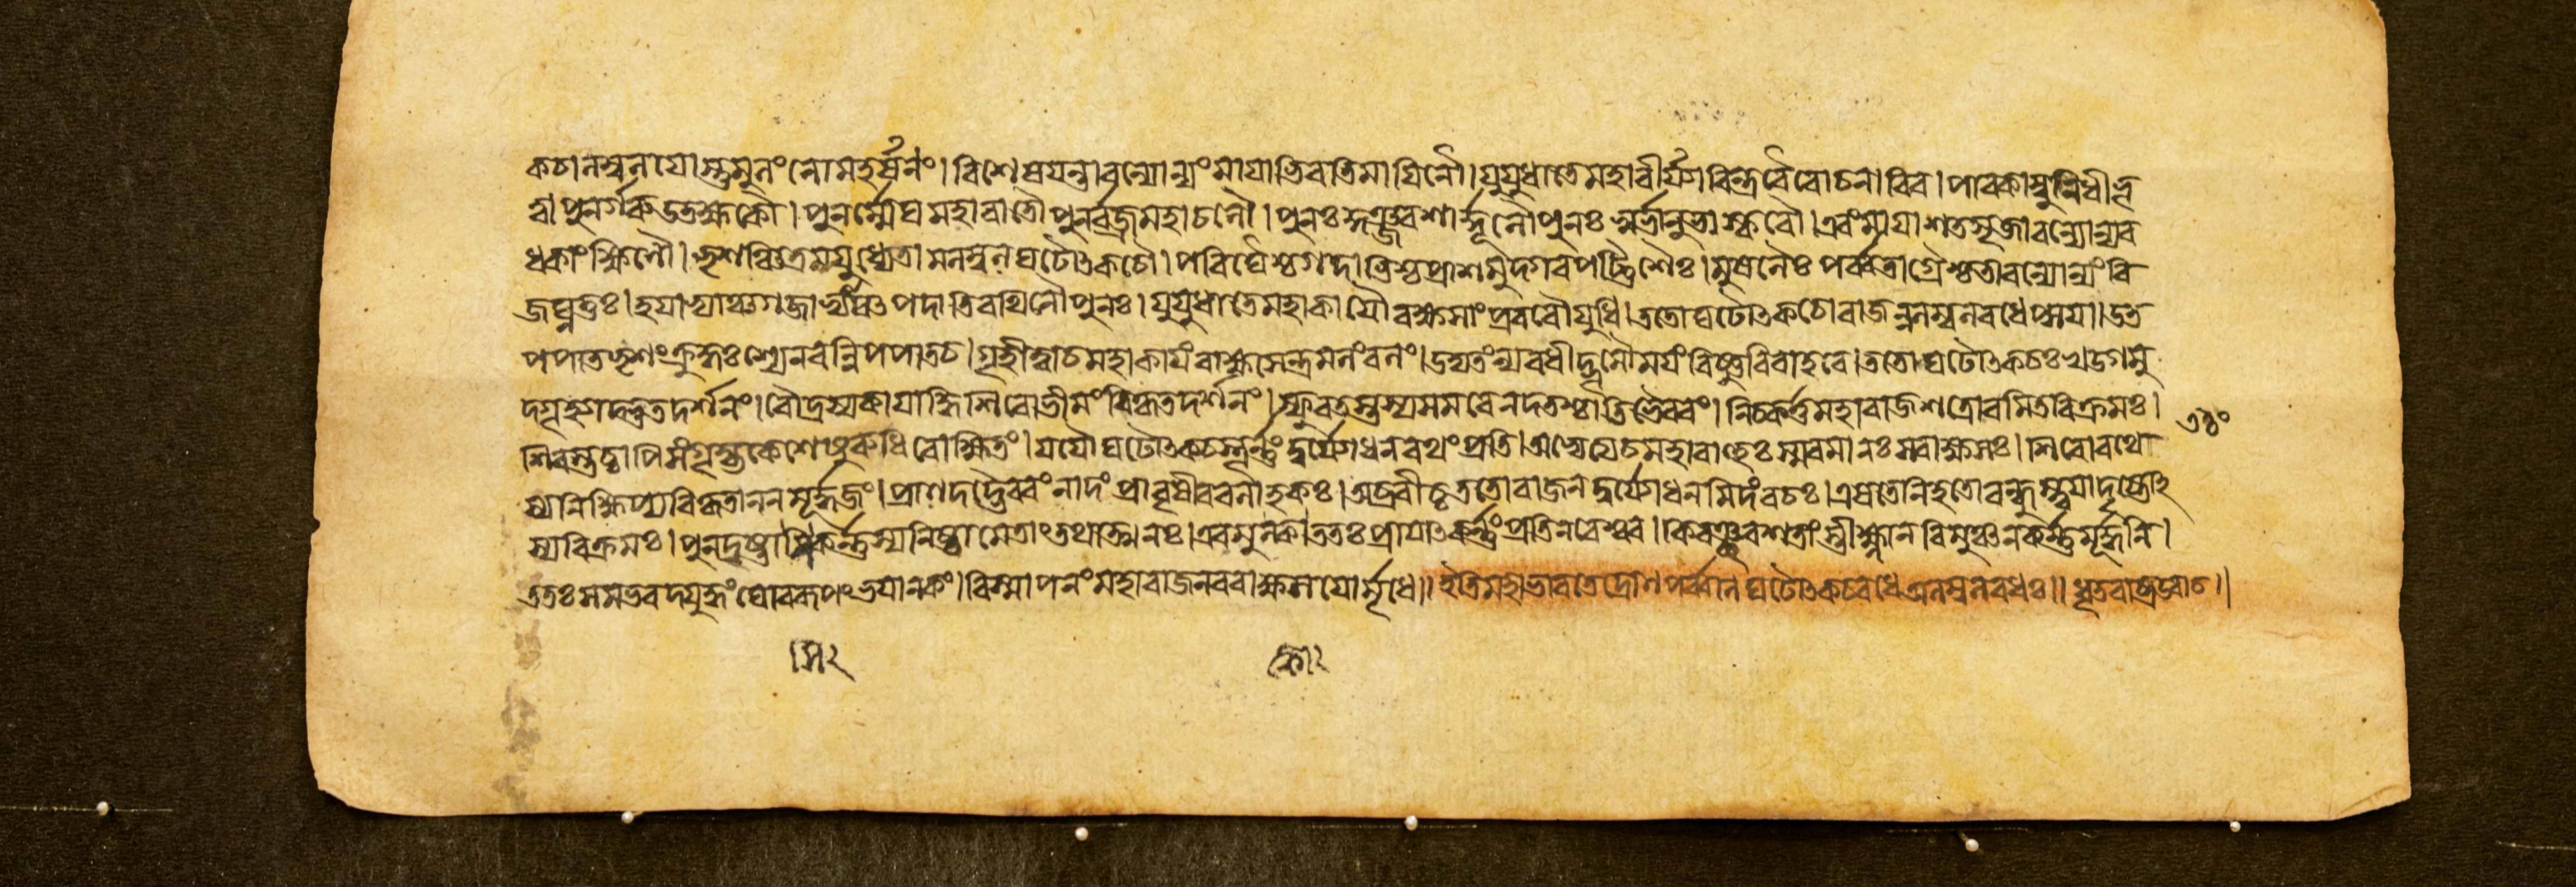 কচালম্বলযোস্তুমুলং লোমহর্ষণং। বিশেষয়ন্তাবন্যোন্যং মায়াভিরতিমায়িনৌ। যুযুধাতে মহাবীর্য্যাবিন্দ্রবৈরোচনাবিব। পাবকাম্বুনিধীভূ
ত্বা পুনর্গরুডতক্ষকৌ। পুনর্ম্মেঘমহাবাতৌ পুনর্বজ্রমহাচলৌ। পুনঃ কুঞ্জরশার্দ্দূলৌ পুনঃ স্বর্ভানুভাস্করৌ। এবং মায়াশতসৃজাবন্যোন্যব
ধকাংক্ষিণৌ। ভৃশঞ্চিত্রমযুধ্যেতামলম্বলঘটোৎকচৌ। পরিঘৈশ্চ গদাভিশ্চ প্রাশমুদ্গরপট্টিশৈঃ। মুষলৈঃ পর্ব্বতাগ্রৈশ্চ তাবন্যোন্যং বি
জঘ্নতুঃ। হয়াভ্যাঞ্চ গজাভ্যাঞ্চ পদাতিরথিনৌ পুনঃ। যুযুধাতে মহাকায়ৌ রক্ষসাং প্রবরৌ যুধি। ততো ঘটোৎকচো রাজন্নলম্বলবধেপ্সয়া। উৎ
পপাত ভৃশং ক্রুদ্ধঃ শ্যেনবন্নিপপাত চ। গৃহীত্বা চ মহাকায়ং রাক্ষসেন্দ্রমলংবলং। উদ্যতং ন্যবধীদ্ভূমৌ ময়ং বিষ্ণুরিবাহবে। ততো ঘটোৎকচঃ খড্গমু
দ্গৃহ্যাদ্ভুতদর্শনং। রৌদ্রস্য কায়াদ্ধি শিরো ভীমং বিকৃতদর্শনং। স্ফুরতস্তস্য সমরে নদতশ্চাতিভৈরবং। নিচকর্ত্ত মহারাজ শত্রোরমিতবিক্রমঃ।
শিরস্তচ্চাপি সংগৃহ্য কেশেষু রুধিরোক্ষিতং। যযৌ ঘটোৎকচস্তূর্ণ্ণং দুর্যোধনরথং প্রতি। অভ্যেত্য চ মহাবাহুঃ স্ময়মানঃ স রাক্ষসঃ। শিরো রথে
স্য নিক্ষিপ্য বিকৃতাননমূর্দ্ধজং। প্রাণদদ্ভৈরবং নাদং প্রাবৃষীব বলাহকঃ। অব্রবীচ্চ ততো রাজন দুর্যোধনমিদং বচঃ। এষ তে নিহতো বন্ধুস্ত্বয়া দৃষ্টোঽ
স্য বিক্রমঃ। পুনর্দ্রষ্টাসি কর্ণ্ণস্য নিষ্ঠামেতাং তথাত্মনঃ। এবমুক্ত্বা ততঃ প্রায়াৎ কর্ণ্ণং প্রতি নরেশ্বর। কিরঞ্ছরশতাংস্তীক্ষ্ণান বিমুঞ্চন কর্ণ্ণমূর্দ্ধনি।
ততঃ সমভবদ্যুদ্ধং ঘোররূপং ভয়ানকং। বিস্মাপনং মহারাজ নররাক্ষসযোর্মৃধে॥ ইতি মহাভারতে দ্রোণপর্ব্বণি ঘটোৎকচবধে অলম্বলবধঃ॥ ধৃতরাষ্ট্র উবাচ॥